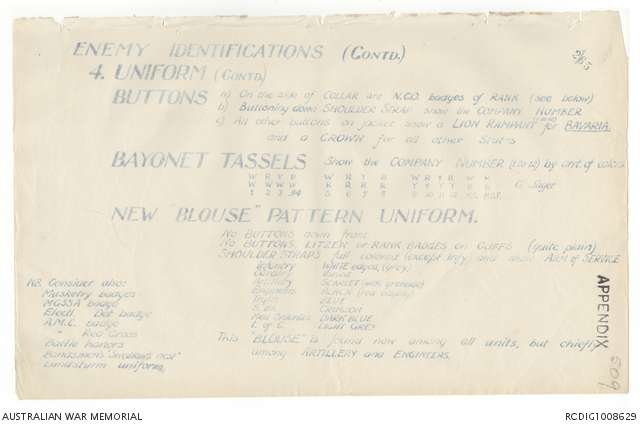 ENEMY IDENTIFICATIONS (CONTD.)
4. UNIFORM (CONTD)
BUTTONS a) On the side of COLLAR are N.C.O. badges of RANK (see below)
b) Buttoning down SHOULDER STRAP show the COMPANY NUMBER
c) All other buttons on jacket show a LION RAMPANT for BAVARIA
and a CROWN for all other States
BAYONET TASSELS Show the COMPANY NUMBER (1 to 12) by cmt. of colors
NEW "BLOUSE" PATTERN UNIFORM.
No BUTTONS down front
No BUTTONS, LITZEN or RANK BADGES on CUFFS (quite plain)
SHOULDER STRAPS full colored (except Infy) and show ARM of SERVICE
Infantry WHITE edged, (grey)
Cavalry
Artillery SCARLET (with grenade)
Engineers BLACK (red edging)
Train BLUE
CRIMSON
DARK BLUE
L. of C. LIGHT GREY
This "BLOUSE" is found now among all units, but chiefly
among ARTILLERY and ENGINEERS.
NB. Consider also:
Musketry badges
MGSSA badge
Electl. Det badge
A.M.C. badge
" Red Cross
Battle honors
Bandsmen's "swallows nest"
Landsturm uniforms
APPENDIX
509
AUSTRALIAN WAR MEMORIAL
RCDIG1008629